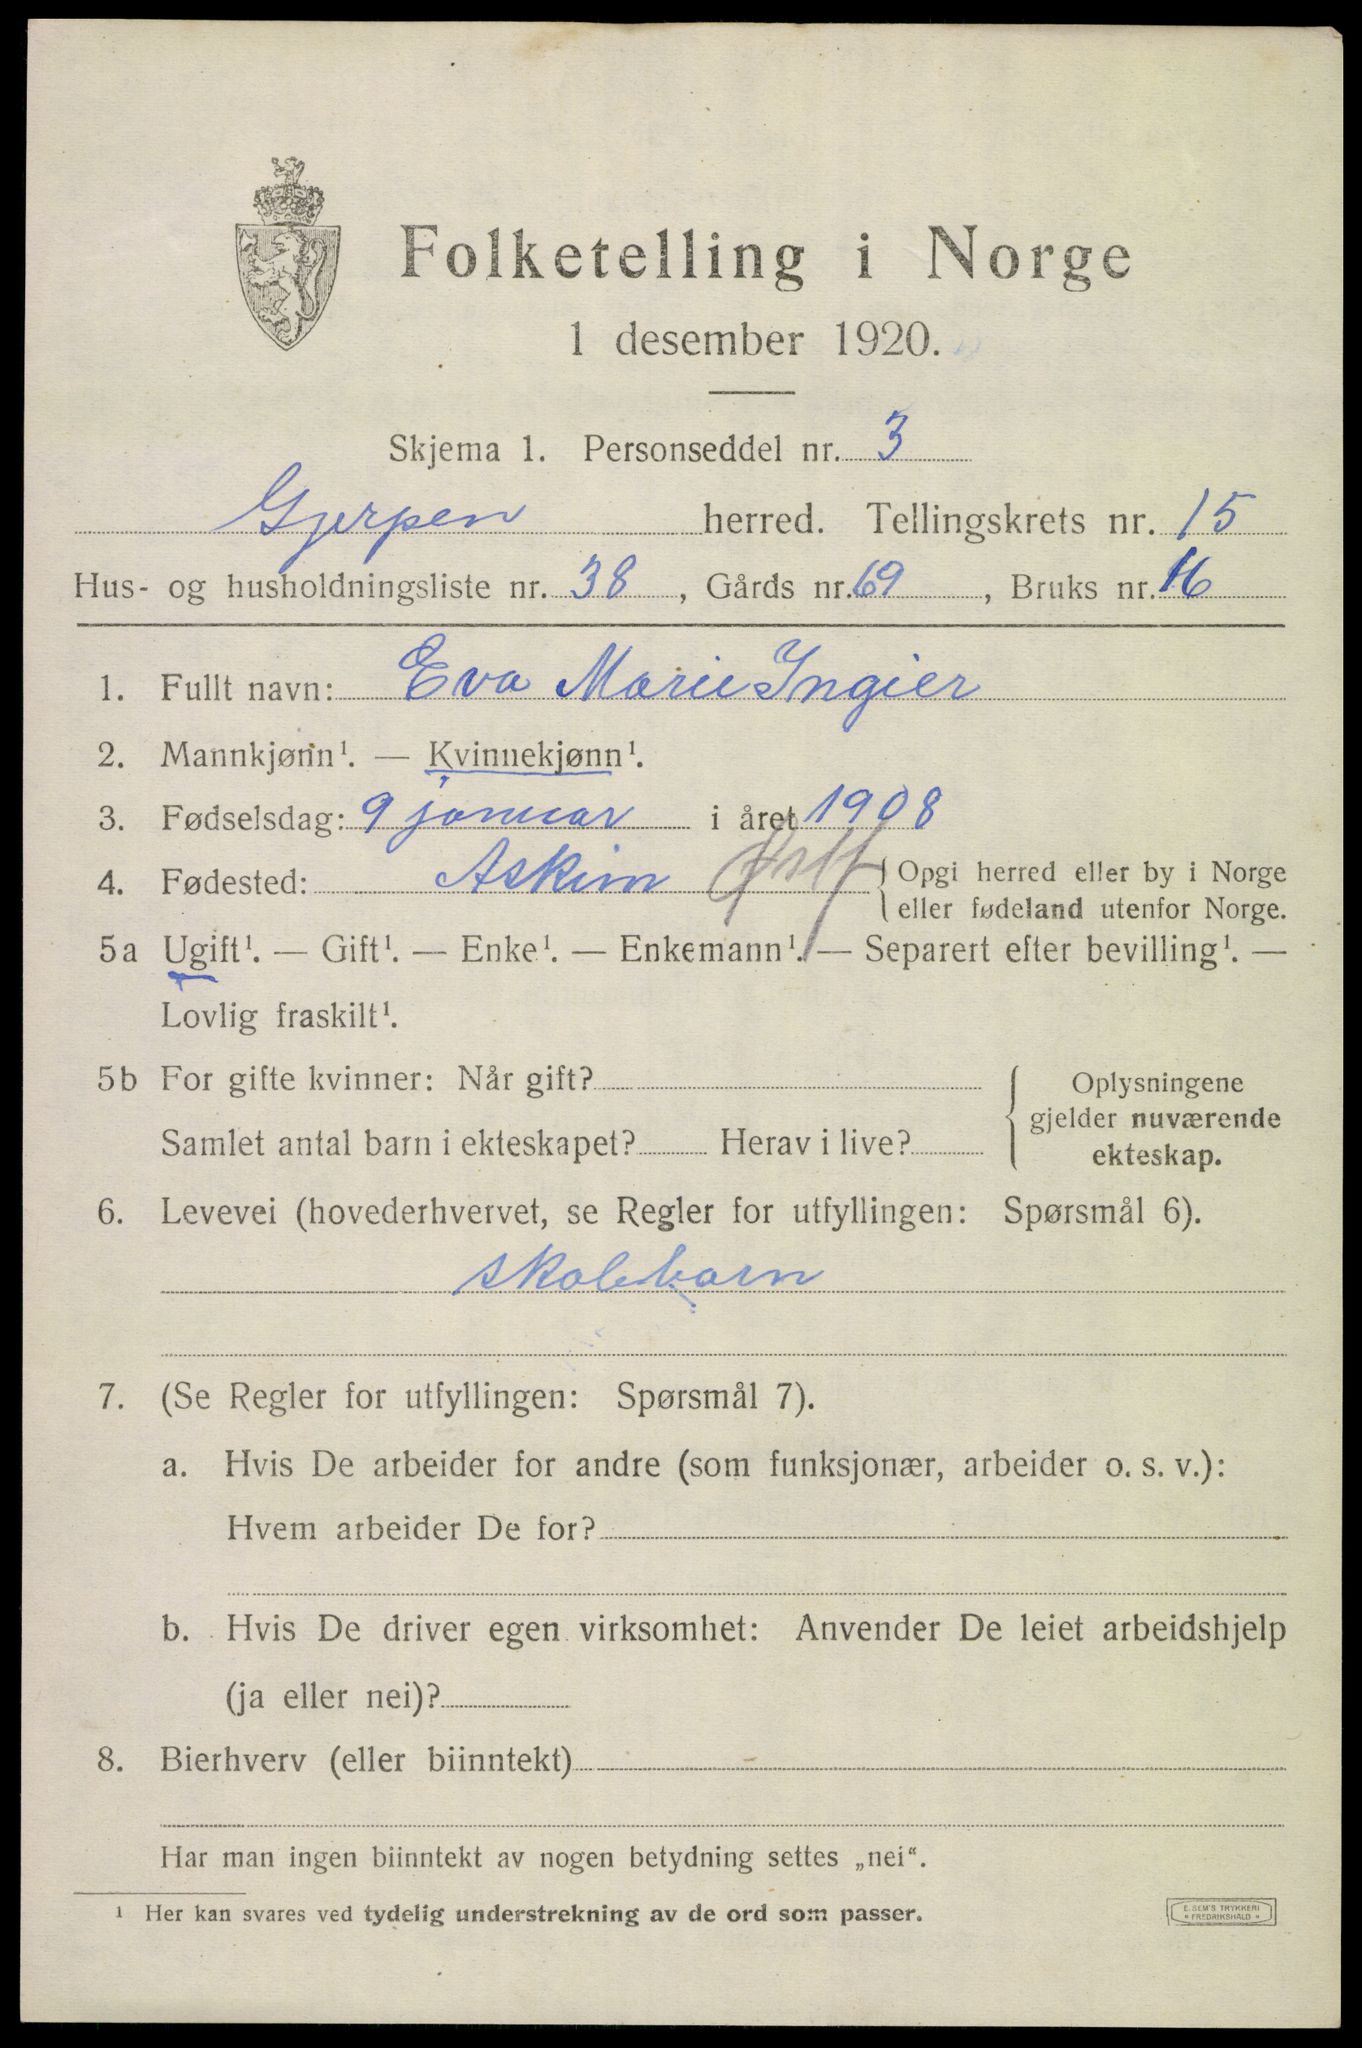 Folketelling i Norge
1 desember 1920.
Skjema 1. Personseddel nr. 3
Gjerpen herred. Tellingskrets nr. 15
Hus- og husholdningsliste nr. 38, Gårds nr. 69, Bruks nr. 16
1. Fullt navn: Eva Marie Ingier
2. Mannkjønn¹. — Kvinnekjønn¹.
3. Fødselsdag: 9 januar i året 1908
4. Fødested: Askim Østf { Opgi herred eller by i Norge
eller fødeland utenfor Norge.
5a Ugift¹. — Gift¹. — Enke¹. — Enkemann¹. — Separert efter bevilling¹. —
Lovlig fraskilt¹.
5b For gifte kvinner: Når gift? { Oplysningene
gjelder nuværende
Samlet antal barn i ekteskapet? Herav i live? ekteskap.
6. Levevei (hovederhvervet, se Regler for utfyllingen: Spørsmål 6).
skolebarn
7. (Se Regler for utfyllingen: Spørsmål 7).
a. Hvis De arbeider for andre (som funksjonær, arbeider o. s. v.):
Hvem arbeider De for?
b. Hvis De driver egen virksomhet: Anvender De leiet arbeidshjelp
(ja eller nei)?
8. Bierhverv (eller biinntekt)
Har man ingen biinntekt av nogen betydning settes „nei“.
¹ Her kan svares ved tydelig understrekning av de ord som passer.
E. SEM'S TRYKKERI
FREDRIKSHALD